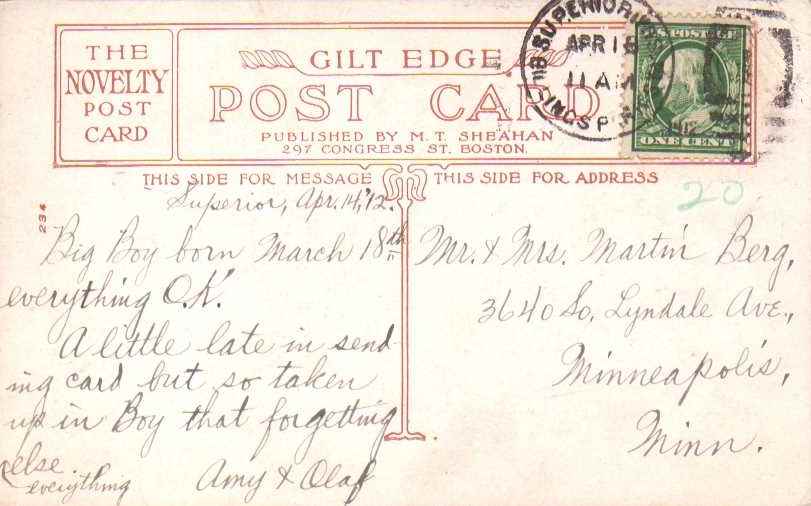 THE
NOVELTY
POST
CARD
GILT EDGE
POST CARD
PUBLISHED BY M. T. SHEAHAN
297 CONGRESS ST. BOSTON.
SUPERIOR
APR 15
11 AM
U.S. POSTAGE
ONE CENT
THIS SIDE FOR MESSAGE
THIS SIDE FOR ADDRESS
20
234
Superior, Apr. 14,'12.
Big Boy born March 18th
everything O.K.
A little late in send-
ing card but so taken
up in Boy that forgetting
else
everything
Amy & Olaf
Mr. & Mrs. Martin Berg,
3640 So. Lyndale Ave.,
Minneapolis,
Minn.